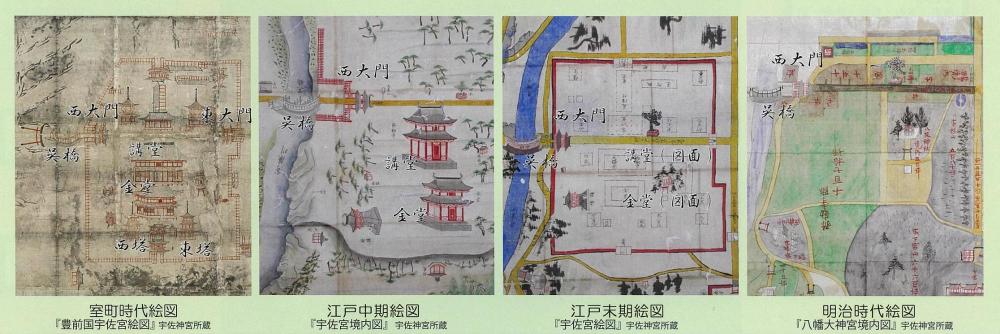 西大門
東大門
呉橋
講堂
金堂
西塔
東塔
室町時代絵図
『豊前国宇佐宮絵図』 宇佐神宮所蔵
西大門
呉橋
講堂
金堂
江戸中期絵図
『宇佐宮境内図』 宇佐神宮所蔵
西大門
呉橋
講堂（図面）
金堂（図面）
江戸末期絵図
『宇佐宮絵図』 宇佐神宮所蔵
西大門
呉橋
明治時代絵図
『八幡大神宮境内図』 宇佐神宮所蔵